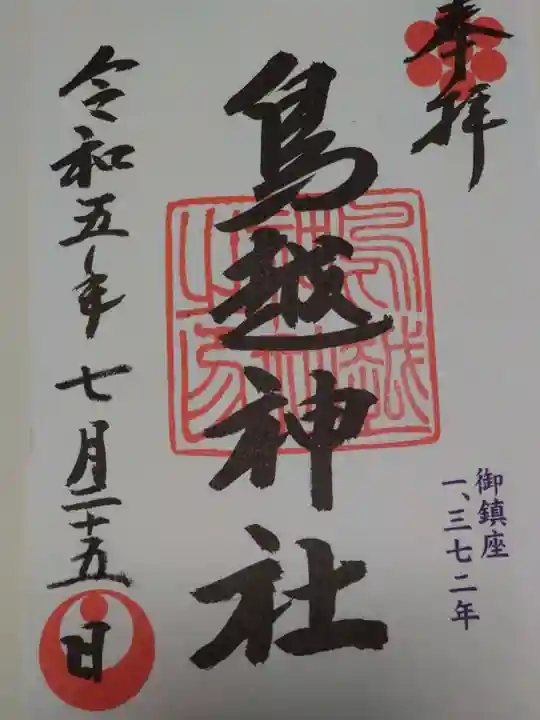 奉拝
鳥越神社
御鎮座
一、三七二年
令和五年七月二十五日